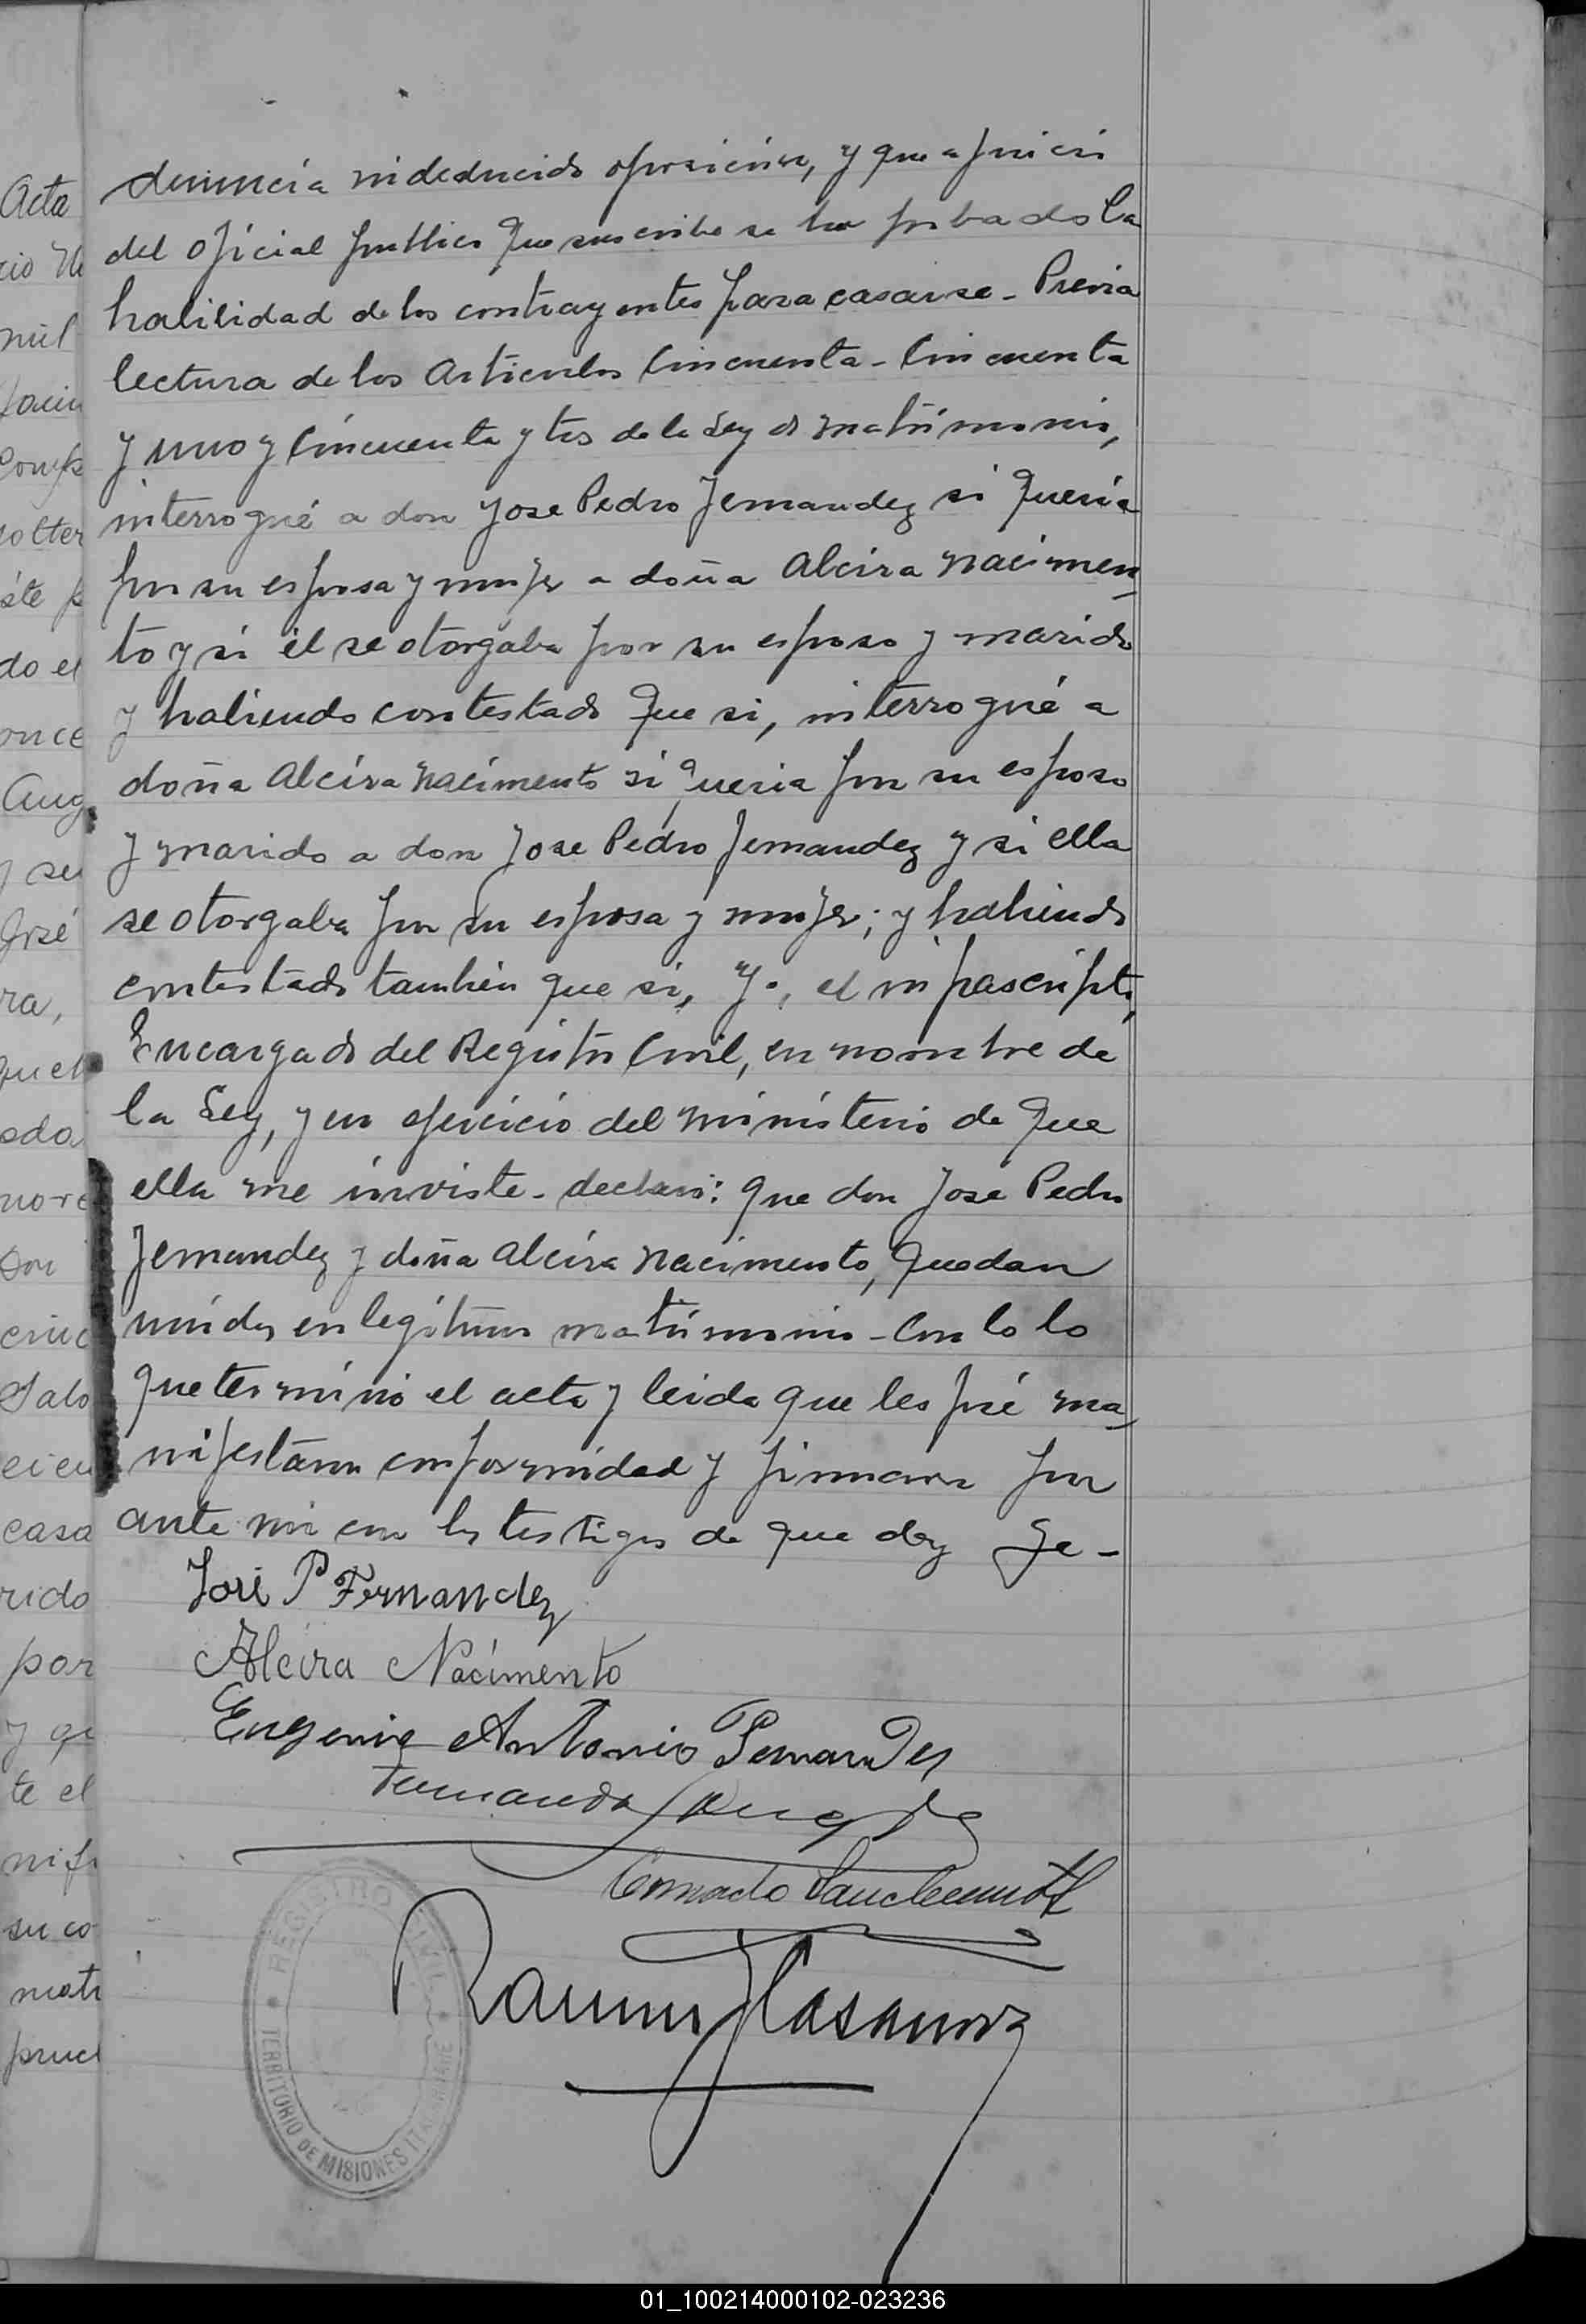 denuncia ni deducido oposición, y que a juicio
del oficial publico que suscribe se ha probado la
habilidad de los contrayentes para casarse - Previa
lectura de los Articulos Cincuenta - Cincuenta
y uno y Cincuenta y tres de la Ley de matrimonio,
interrogué a don Jose Pedro Fernandez si queria
por su esposa y mujer a doña Alcira Nacimen-
to y si él se otorgaba por su esposo y marido
y habiendo contestado que si, interrogué a
doña Alcira Nacimento si queria por su esposo
y marido a don Jose Pedro Fernandez y si ella
se otorgaba por su esposa y mujer; y habiendo
contestado tambien que si, Yo, el infrascripto,
Encargado del Registro Civil, en nombre de
la Ley, y en ejercicio del ministerio de que
ella me inviste - declaro: que don José Pedro
Fernandez y doña Alcira Nacimento, quedan
unidos en legitimo matrimonio - Con lo lo
que terminó el acta y leida que les fué ma-
nifestaron conformidad y firmaron por
ante mi con los testigos de que doy fe -
José P Fernandez
Alcira Nacimento
Eugenio Antonio Fernandes
Fernando
Conrado
Ramon Casanova
REGISTRO CIVIL
TERRITORIO DE MISIONES
Acta
mil
solter
do el
once
Aug
y se
José
ra,
casa
rido
por
te el
su co
matr
01_100214000102-023236